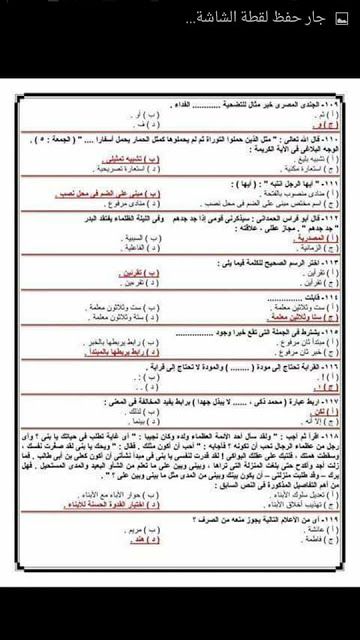 جار حفظ لقطة الشاشة...
١٠٩- الجندى المصرى خير مثال للتضحية ............ الفداء .
( أ ) ثم . ( ب ) أو .
( ج ) و . ( د ) فـ .
١١٠- قال الله تعالى : " مثل الذين حملوا التوراة ثم لم يحملوها كمثل الحمار يحمل أسفارا .... " ( الجمعة : ٥ ) .
الوجه البلاغى فى الآية الكريمة :
( أ ) تشبيه بليغ . ( ب ) تشبيه تمثيلى .
( ج ) استعارة مكنية . ( د ) استعارة تصريحية .
١١١- " أيها الرجل انتبه " : ( أيها ) :
( أ ) منادى منصوب بالفتحة . ( ب ) مبنى على الضم فى محل نصب .
( ج ) اسم مختص مبنى على الضم فى محل نصب . ( د ) منادى مرفوع .
١١٢- قال أبو فراس الحمدانى : سيذكرنى قومى إذا جد جدهم وفى الليلة الظلماء يفتقد البدر
" جد جدهم " . مجاز عقلى ، علاقته :
( أ ) المصدرية . ( ب ) السببية .
( ج ) الزمانية . ( د ) الفاعلية .
١١٣- اختر الرسم الصحيح للكلمة فيما يلى :
( أ ) تقرأين . ( ب ) تقرئين .
( ج ) تقرأين . ( د ) تقرءين .
١١٤- قابلت ..............
( أ ) ستة وثلاثين معلمة . ( ب ) ست وثلاثون معلمة .
( ج ) ستا وثلاثين معلمة . ( د ) ستة وثلاثون معلمة .
١١٥- يشترط فى الجملة التى تقع خبرا وجود ................
( أ ) مبتدأ ثان مرفوع . ( ب ) رابط يربطها بالخبر .
( ج ) خبر ثان مرفوع . ( د ) رابط يربطها بالمبتدأ .
١١٦- القرابة تحتاج إلى مودة ( ........ ) والمودة لا تحتاج إلى قرابة .
( أ ) ! . ( ب ) : .
( ج ) ، . ( د ) .
١١٧- اربط عبارة ( محمد ذكى ، ...... لا يبذل جهدا ) برابط يفيد المخالفة فى المعنى :
( أ ) لكن . ( ب ) لذلك .
( ج ) إلا أنه . ( د ) بينما .
١١٨- اقرأ ثم أجب : " ولقد سأل أحد الأئمة العظماء ولده وكان نجيبا : " أى غاية تطلب فى حياتك يا بنى ؟ وأى
رجل من عظماء الرجال تحب أن تكونه ؟ فأجابه : " أحب أن أكون مثلك . فقال : " ويحك يا بنى لقد صغرت نفسك ،
وسقطت همتك ، فلتبك على عقلك البواكى ! لقد قدرت لنفسى يا بنى فى مبدأ نشأتى أن أكون كعلى بن أبى طالب . فما
زلت أجد وأكدح حتى بلغت المنزلة التى تراها ، وبينى وبين على ما تعلم من الشأو البعيد والمدى المستحيل . فهل
يسرك – وقد طلبت منزلتى – أن يكون بينك وبينى من المدى مثل ما بينى وبين على ؟ " .
من أهم التفاصيل المذكورة فى النص السابق :
( أ ) تعديل سلوك الأبناء . ( ب ) حوار الآباء مع الأبناء .
( ج ) تهذيب أخلاق الأبناء . ( د ) اختيار القدوة الحسنة للأبناء .
١١٩- أى من الأعلام التالية يجوز منعه من الصرف ؟
( أ ) عائشة . ( ب ) مريم .
( ج ) فاطمة . ( د ) هند .